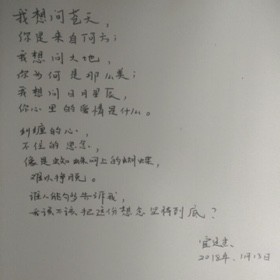 我想问苍天，
你是来自何方；
我想问大地，
你为何是那么美；
我想问日月星辰，
你心里的爱情是什么。
纠缠的心，
不住的思念，
像是蜘蛛网上的蝴蝶，
难以挣脱。
谁人能够告诉我，
应该不该把这份想念坚持到底？
2018年1月18日